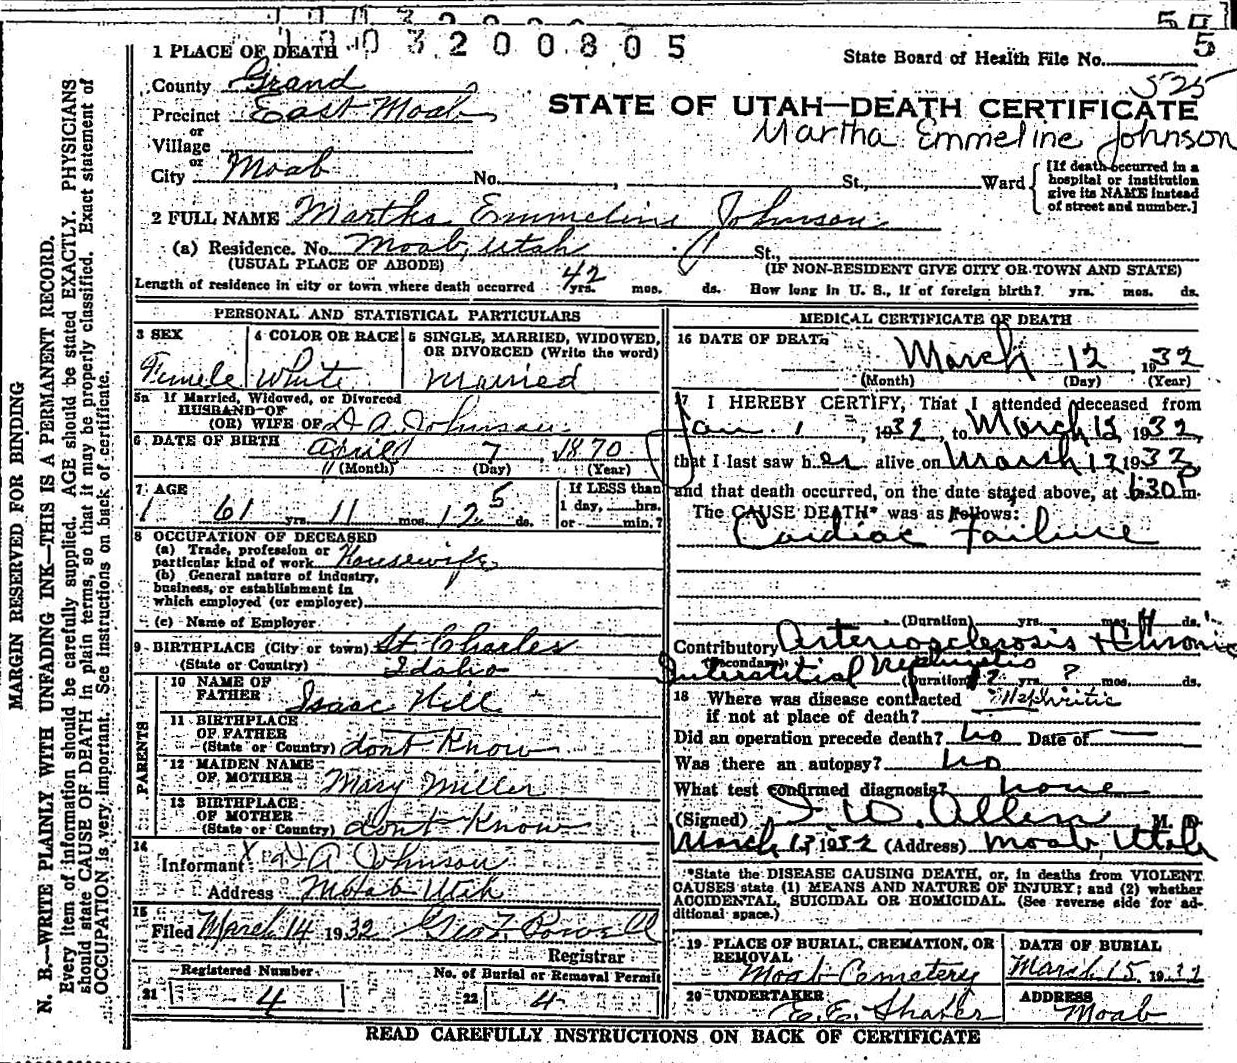 1003200805
5
State Board of Health File No.
525
STATE OF UTAH—DEATH CERTIFICATE
Martha Emmeline Johnson
1 PLACE OF DEATH
County Grand
Precinct East Moab
or
Village
or
City Moab No. , St., Ward
[If death occurred in a hospital or institution give its NAME instead of street and number.]
2 FULL NAME Martha Emmeline Johnson
(a) Residence. No. Moab, Utah St.,
(USUAL PLACE OF ABODE) (IF NON-RESIDENT GIVE CITY OR TOWN AND STATE)
Length of residence in city or town where death occurred 42 yrs. mos. ds. How long in U. S., if of foreign birth? yrs. mos. ds.
PERSONAL AND STATISTICAL PARTICULARS
3 SEX
Female
4 COLOR OR RACE
White
5 SINGLE, MARRIED, WIDOWED,
OR DIVORCED (Write the word)
Married
5a If Married, Widowed, or Divorced
HUSBAND OF
(OR) WIFE OF D. A. Johnson
6 DATE OF BIRTH April 7 1870
(Month) (Day) (Year)
7 AGE
61 yrs. 11 mos. 5 ds.
If LESS than
1 day, hrs.
or min.?
8 OCCUPATION OF DECEASED
(a) Trade, profession or
particular kind of work Housewife
(b) General nature of industry,
business, or establishment in
which employed (or employer)
(c) Name of Employer
9 BIRTHPLACE (City or town) St Charles
(State or Country) Idaho
PARENTS
10 NAME OF
FATHER Isaac Hill
11 BIRTHPLACE
OF FATHER
(State or Country) dont Know
12 MAIDEN NAME
OF MOTHER Mary Miller
13 BIRTHPLACE
OF MOTHER
(State or Country) dont Know
14
Informant D A Johnson
Address Moab Utah
15
Filed March 14 1932 Geo. F. Powell
Registrar
Registered Number
21 4
No. of Burial or Removal Permit
22 4
MEDICAL CERTIFICATE OF DEATH
16 DATE OF DEATH
March 12 1932
(Month) (Day) (Year)
17 I HEREBY CERTIFY, That I attended deceased from
Jan. 1, 1932, to March 12, 1932,
that I last saw her alive on March 12 1932
and that death occurred, on the date stated above, at 630 P m.
The CAUSE DEATH* was as follows:
Cardiac Failure
(Duration) yrs. mos. ds.
Contributory Arteriosclerosis + Chronic
(Secondary)
Interstitial Nephritis (Duration) ? yrs. ? mos. ds.
18 Where was disease contracted
if not at place of death?
Nephritic
Did an operation precede death? no Date of —
Was there an autopsy? no
What test confirmed diagnosis? none
(Signed) I. W. Allen M. D.
March 13 1932 (Address) Moab, Utah
*State the DISEASE CAUSING DEATH, or, in deaths from VIOLENT
CAUSES state (1) MEANS AND NATURE OF INJURY; and (2) whether
ACCIDENTAL, SUICIDAL OR HOMICIDAL. (See reverse side for ad-
ditional space.)
19 PLACE OF BURIAL, CREMATION, OR
REMOVAL
Moab Cemetery
DATE OF BURIAL
March 15, 1932
20 UNDERTAKER
E. E. Shafer
ADDRESS
Moab
READ CAREFULLY INSTRUCTIONS ON BACK OF CERTIFICATE
MARGIN RESERVED FOR BINDING
N. B.—WRITE PLAINLY WITH UNFADING INK—THIS IS A PERMANENT RECORD.
Every item of information should be carefully supplied. AGE should be stated EXACTLY. PHYSICIANS
should state CAUSE OF DEATH in plain terms, so that it may be properly classified. Exact statement of
OCCUPATION is very important. See instructions on back of certificate.